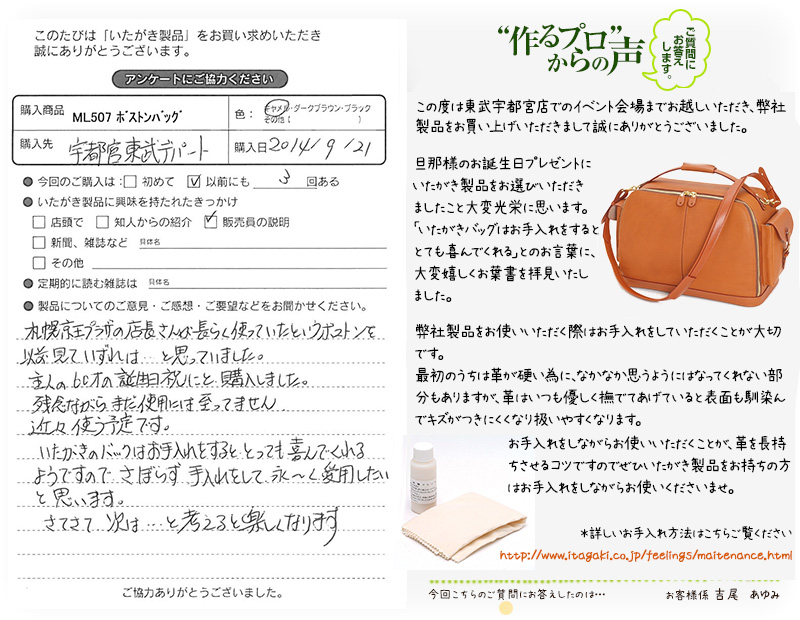 このたびは「いたがき製品」をお買い求めいただき
誠にありがとうございます。
アンケートにご協力ください
購入商品
ML507 ボストンバッグ
色：
キャメル・ダークブラウン・ブラック
その他（　　　　　　　）
購入先
宇都宮東武デパート
購入日 2014/9/21
●今回のご購入は：□初めて ☑以前にも 3 回ある
●いたがき製品に興味を持たれたきっかけ
□店頭で □知人からの紹介 ☑販売員の説明
□新聞、雑誌など 具体名
□その他
●定期的に読む雑誌は 具体名
●製品についてのご意見・ご感想・ご要望などをお聞かせください。
札幌京王プラザの店長さんが長らく使っていたというボストンを
見ていずれは…と思っていました。
主人の60才の誕生日祝にと購入しました。
残念ながらまだ使用には至ってません
近々使う予定です。
いたがきのバッグはお手入れをするととっても喜んでくれる
ようですので さぼらず手入れをして永〜く愛用したい
と思います。
さてさて 次は…と考えると楽しくなります
ご協力ありがとうございました。
“作るプロ”
からの声
ご質問に
お答え
します。
この度は東武宇都宮店でのイベント会場までお越しいただき、弊社
製品をお買い上げいただきまして誠にありがとうございました。
旦那様のお誕生日プレゼントに
いたがき製品をお選びいただき
ましたこと大変光栄に思います。
「いたがきバッグはお手入れをすると
とても喜んでくれる」とのお言葉に、
大変嬉しくお葉書を拝見いたし
ました。
弊社製品をお使いいただく際はお手入れをしていただくことが大切
です。
最初のうちは革が硬い為に、なかなか思うようにはなってくれない部
分もありますが、革はいつも優しく撫でてあげていると表面も馴染ん
でキズがつきにくくなり扱いやすくなります。
お手入れをしながらお使いいただくことが、革を長持
ちさせるコツですのでぜひいたがき製品をお持ちの方
はお手入れをしながらお使いくださいませ。
＊詳しいお手入れ方法はこちらご覧ください
http://www.itagaki.co.jp/feelings/maitenance.html
今回こちらのご質問にお答えしたのは…
お客様係 吉尾 あゆみ